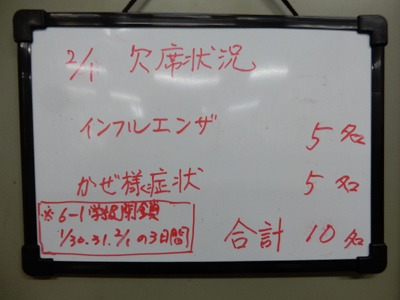 2/1 欠席状況
インフルエンザ 5名
かぜ様症状 5名
※6-1学級閉鎖
1/30.31.2/1の3日間
合計 10名